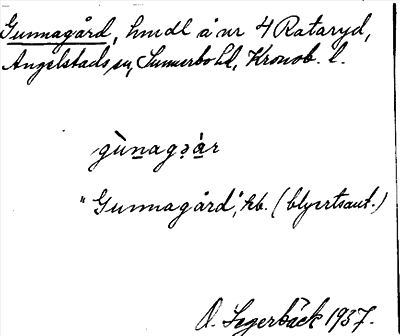 Gunnagård, hmdl å nr 4 Rataryd,
Angelstads sn, Sunnerbo hd, Kronob. l.
gùnagạ́r
"Gunnagård", kb. (blyertsant.)
O. Segerbäck 1937.